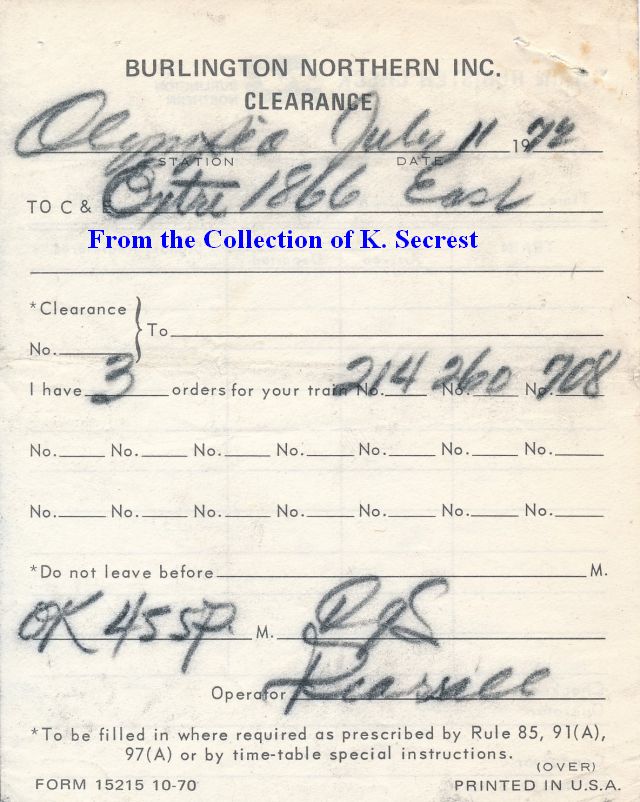 BURLINGTON NORTHERN INC.
CLEARANCE
Olympia July 11 1972
STATION DATE
TO C & E Extra 1866 East
From the Collection of K. Secrest
*Clearance
No.____ } To____
I have 3 orders for your train No. 214 No. 260 No. 708
No.____ No.____ No.____ No.____ No.____ No.____ No.____
No.____ No.____ No.____ No.____ No.____ No.____ No.____
*Do not leave before____ M.
OK 455P M.
Operator
*To be filled in where required as prescribed by Rule 85, 91(A),
97(A) or by time-table special instructions.
(OVER)
FORM 15215 10-70 PRINTED IN U.S.A.